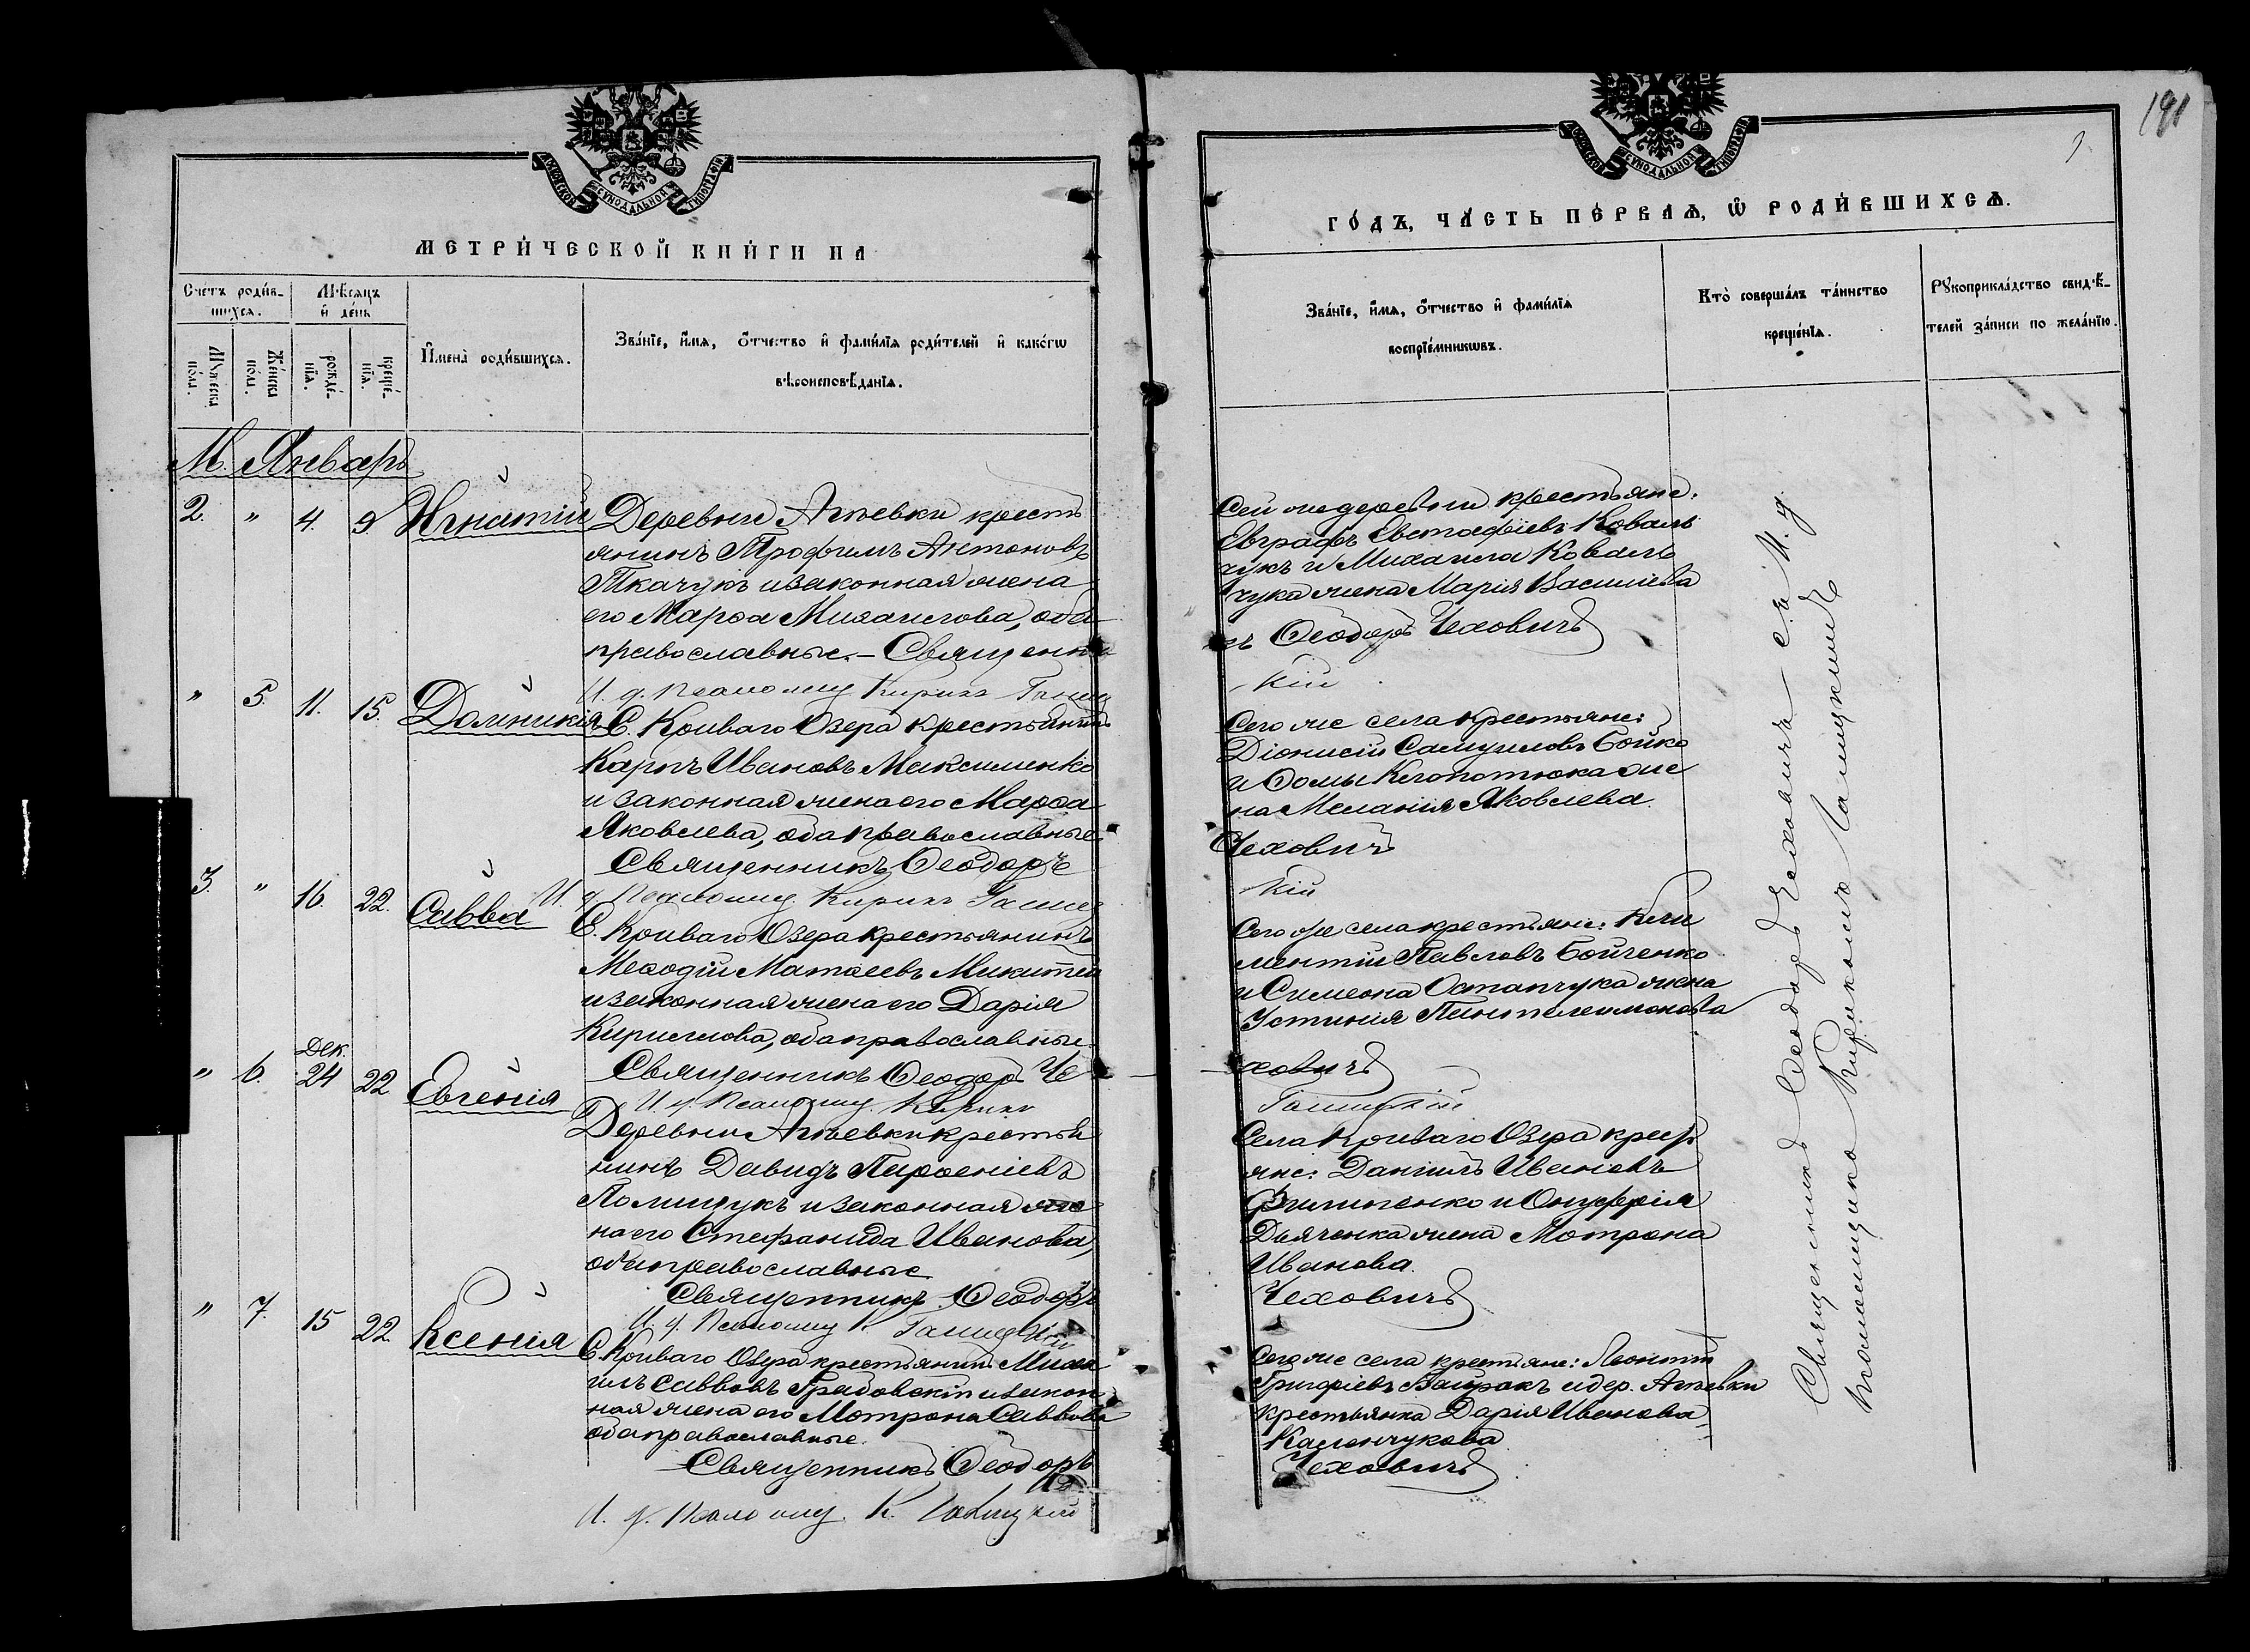 191
МОСКОВСКОЙ СѴНОДАЛЬНОЙ ТИПОГРАФІИ
МЕТРИ́ЧЕСКОЙ КНИ́ГИ НА
Сче́тъ роди́в-
шихся.
Мѣ́сяцъ
и҆ де́нь
Му́жеска по́ла.
Же́нска по́ла.
рожде́-нїѧ.
креще́-нїѧ.
И҆мена̀ роди́вшихсѧ.
Зва́нїе, и҆́мѧ, ѻ҆́тчество и҆ фами́лїѧ роди́телей и҆ како́гѡ
вѣроисповѣ́данїѧ.
М. Январь
2. " 4. 9. Игнатій
Деревни Агѣевки кресть
янинъ Трофимъ Антоновъ
Ткачукъ и законная жена
его Марѳа Михаилова, оба
православные. – Священни
И. д. Псаломщ. Кирикъ Галиц
" 5. 11. 15. Домникія
С. Криваго Озера крестьянинъ
Карпъ Ивановъ Максименко
и законная жена его Марѳа
Яковлева, оба православные
Священникъ Ѳеодоръ
И. д. Псаломщ. Кирикъ Галиц
3. " 16. 22. Савва
С. Криваго Озера крестьянинъ
Меѳодій Матѳеевъ Микитей
и законная жена его Дарія
Кириллова, оба православные
Священникъ Ѳеодоръ Че
И. д. Псаломщ. Кирикъ
" 6. Дек. 24 22 Евгенія
Деревни Агѣевки крестья
нинъ Давидъ Парѳеніевъ
Полищукъ и законная же
на его Стефанида Иванова,
оба православные
Священникъ Ѳеодоръ
И. д. Псаломщ К. Галицкій
" 7. 15 22. Ксенія
С. Криваго Озера крестьянинъ Миха
илъ Саввовъ Грабовскій и закон
ная жена его Мотрона Саввова
оба православные.
Священникъ Ѳеодоръ
И. д. Псаломщ. К. Галицкій
МОСКОВСКОЙ СѴНОДАЛЬНОЙ ТИПОГРАФІИ
ГО́ДЪ, ЧА́СТЬ ПЕ́РВАѦ, Ѡ҆ РОДИ́ВШИХСѦ.
Зва́нїе, и҆́мѧ, ѻ҆́тчество и҆ фами́лїѧ
воспрїе́мникѡвъ.
Кто̀ соверша́лъ та́инство
креще́нїѧ.
Рꙋкоприкла́дство свидѣ́-
телей за́писи по жела́нїю.
Сей же деревни крестьяне:
Евграфъ Евстафіевъ Коваль
чукъ и Михаила Коваль
чука жена Марія Василіева
къ Ѳеодоръ Чеховичъ
кій
Сего же села крестьяне:
Діонисій Самуиловъ Бойко
и Ѳомы Клопотюка же
на Меланія Яковлева.
Чеховичъ
кій
Сего же села крестьяне: Кли
ментій Павловъ Бойченко
и Симеона Остапчука жена
Устинія Пантелеимонова
ховичъ
Галицкій
Села Криваго Озера крест
яне: Даніилъ Ивановъ
Филипенко и Онуфрія
Дьяченка жена Мотрона
Иванова.
Чеховичъ
Сего же села крестьяне: Леонтій
Григоріевъ Байракъ и дер. Агѣевки
крестьянка Дарія Иванова
Каленчукова
Чеховичъ
Священникъ Ѳеодоръ Чеховичъ съ И. д.
псаломщика Кирикомъ Галицкимъ